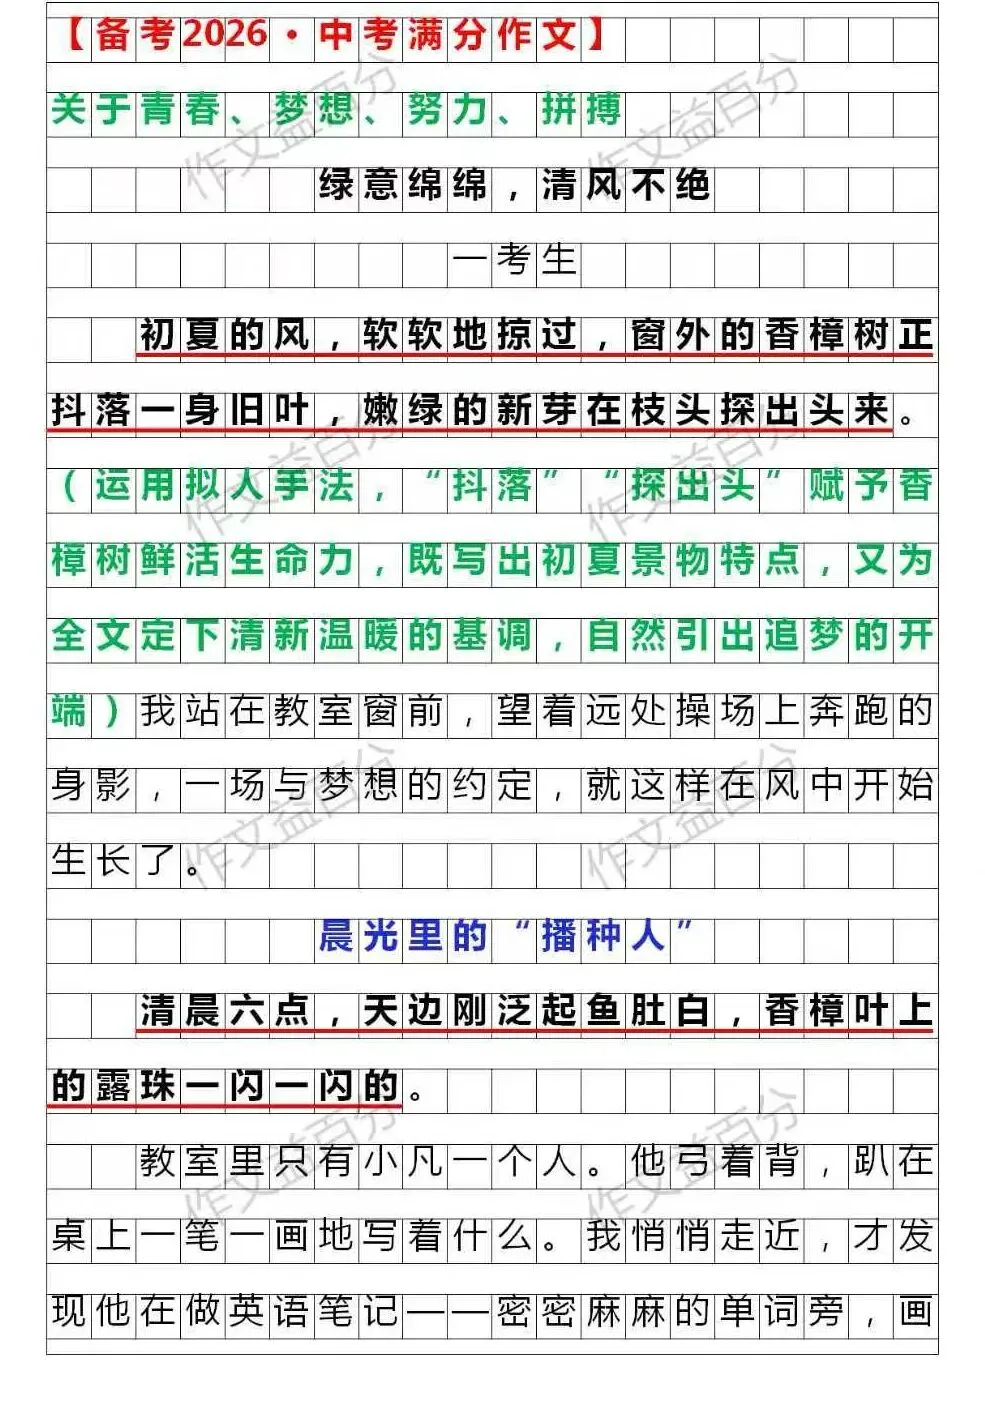 【备考2026·中考满分作文】
关于青春、梦想、努力、拼搏
绿意绵绵，清风不绝
一考生
初夏的风，软软地掠过，窗外的香樟树正
抖落一身旧叶，嫩绿的新芽在枝头探出头来。
（运用拟人手法，“抖落”“探出头”赋予香
樟树鲜活生命力，既写出初夏景物特点，又为
全文定下清新温暖的基调，自然引出追梦的开
端）我站在教室窗前，望着远处操场上奔跑的
身影，一场与梦想的约定，就这样在风中开始
生长了。
晨光里的“播种人”
清晨六点，天边刚泛起鱼肚白，香樟叶上
的露珠一闪一闪的。
教室里只有小凡一个人。他弓着背，趴在
桌上一笔一画地写着什么。我悄悄走近，才发
现他在做英语笔记——密密麻麻的单词旁，画
作文益百分
作文益百分
作文益百分
作文益百分
作文益百分
作文益百分
作文益百分
作文益百分